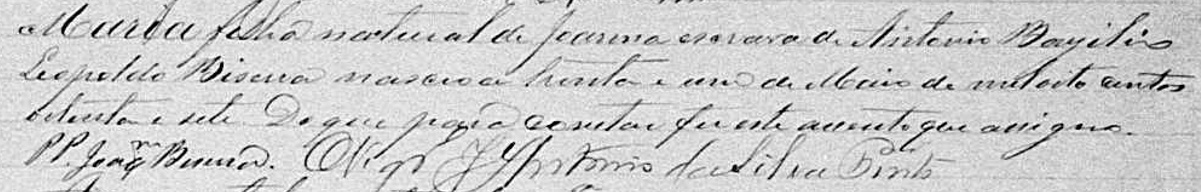 Maria filha natural de Joanna escrava de Antonio Bazilio
Leopoldo Biserra nasceo a trinta e um de Maio de mil oito centos
oitenta e sete. Do que para constar fiz este assento que assigno.
PP. Joaqm Biserra. O Vigº Antonio da Silva Pinto